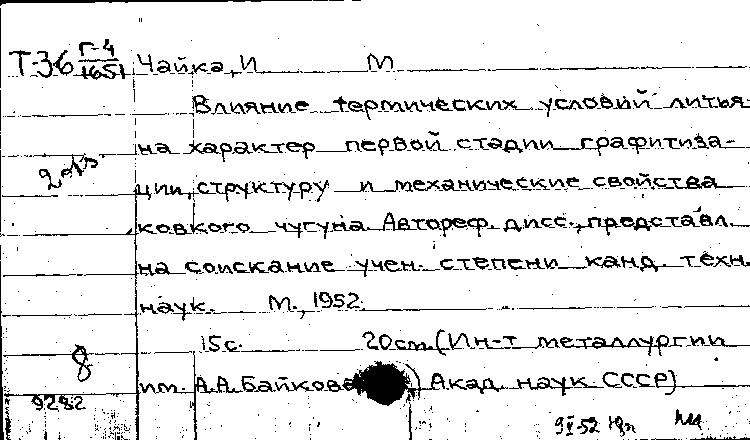 Т-36 Г-4/1651 Чайка, И М
Влияние термических условий литья
на характер первой стадии графитиза-
2 экз.
ции, структуру и механические свойства
ковкого чугуна. Автореф. дисс., представл.
на соискание учен. степени канд. техн.
наук. М., 1952.
15с. 20см. (Ин-т металлургии
8
им. А.А. Байкова Акад. наук СССР)
9282